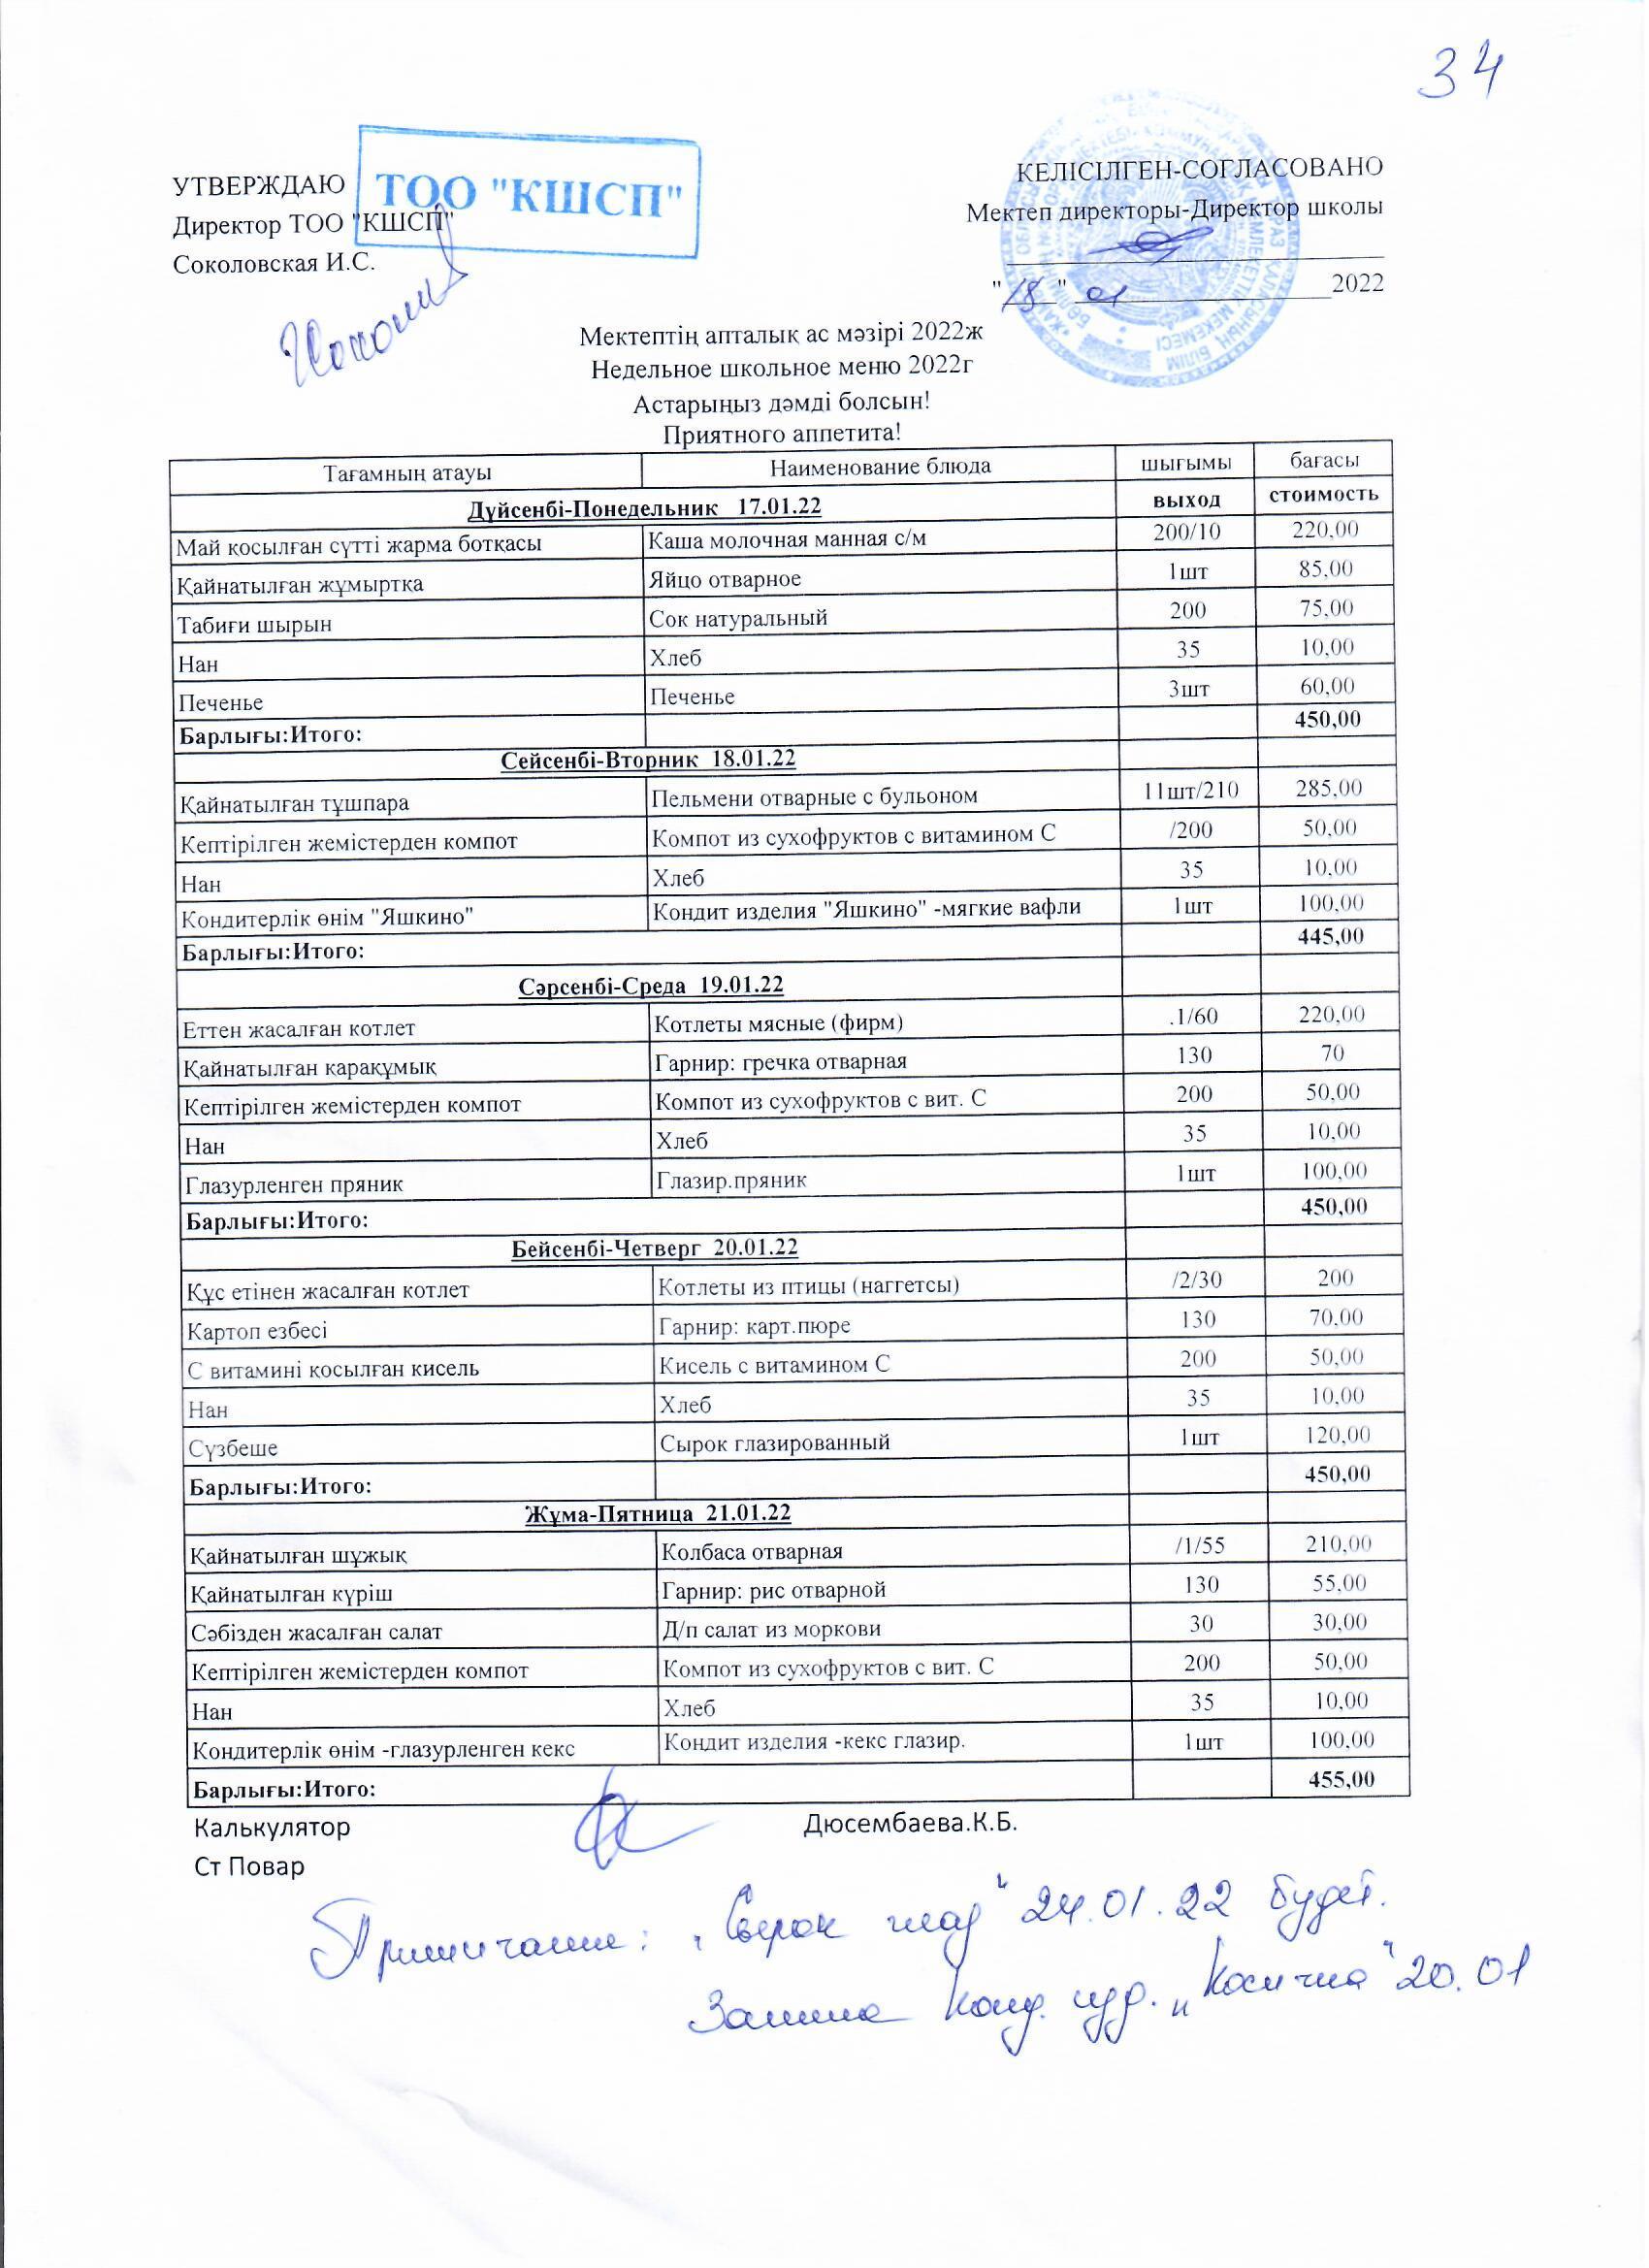 34
УТВЕРЖДАЮ
ТОО "КШСП"
Директор ТОО "КШСП"
Соколовская И.С.
КЕЛІСІЛГЕН-СОГЛАСОВАНО
Мектеп директоры-Директор школы
"18" 01 2022
Мектептің апталық ас мәзірі 2022ж
Недельное школьное меню 2022г
Астарыңыз дәмді болсын!
Приятного аппетита!
Тағамның атауы Наименование блюда шығымы бағасы
Дүйсенбі-Понедельник 17.01.22 выход стоимость
Май қосылған сүтті жарма ботқасы Каша молочная манная с/м 200/10 220,00
Қайнатылған жұмыртқа Яйцо отварное 1шт 85,00
Табиғи шырын Сок натуральный 200 75,00
Нан Хлеб 35 10,00
Печенье Печенье 3шт 60,00
Барлығы:Итого: 450,00
Сейсенбі-Вторник 18.01.22
Қайнатылған тұшпара Пельмени отварные с бульоном 11шт/210 285,00
Кептірілген жемістерден компот Компот из сухофруктов с витамином С /200 50,00
Нан Хлеб 35 10,00
Кондитерлік өнім "Яшкино" Кондит изделия "Яшкино" -мягкие вафли 1шт 100,00
Барлығы:Итого: 445,00
Сәрсенбі-Среда 19.01.22
Еттен жасалған котлет Котлеты мясные (фирм) .1/60 220,00
Қайнатылған қарақұмық Гарнир: гречка отварная 130 70
Кептірілген жемістерден компот Компот из сухофруктов с вит. С 200 50,00
Нан Хлеб 35 10,00
Глазурленген пряник Глазир.пряник 1шт 100,00
Барлығы:Итого: 450,00
Бейсенбі-Четверг 20.01.22
Құс етінен жасалған котлет Котлеты из птицы (наггетсы) /2/30 200
Картоп езбесі Гарнир: карт.пюре 130 70,00
С витамині қосылған кисель Кисель с витамином С 200 50,00
Нан Хлеб 35 10,00
Сүзбеше Сырок глазированный 1шт 120,00
Барлығы:Итого: 450,00
Жұма-Пятница 21.01.22
Қайнатылған шұжық Колбаса отварная /1/55 210,00
Қайнатылған күріш Гарнир: рис отварной 130 55,00
Сәбізден жасалған салат Д/п салат из моркови 30 30,00
Кептірілген жемістерден компот Компот из сухофруктов с вит. С 200 50,00
Нан Хлеб 35 10,00
Кондитерлік өнім -глазурленген кекс Кондит изделия -кекс глазир. 1шт 100,00
Барлығы:Итого: 455,00
Калькулятор Дюсембаева.К.Б.
Ст Повар
Примичание: „Сырок глаз" 24.01.22 будет.
Замена Конд. изд. „Косичка" 20.01